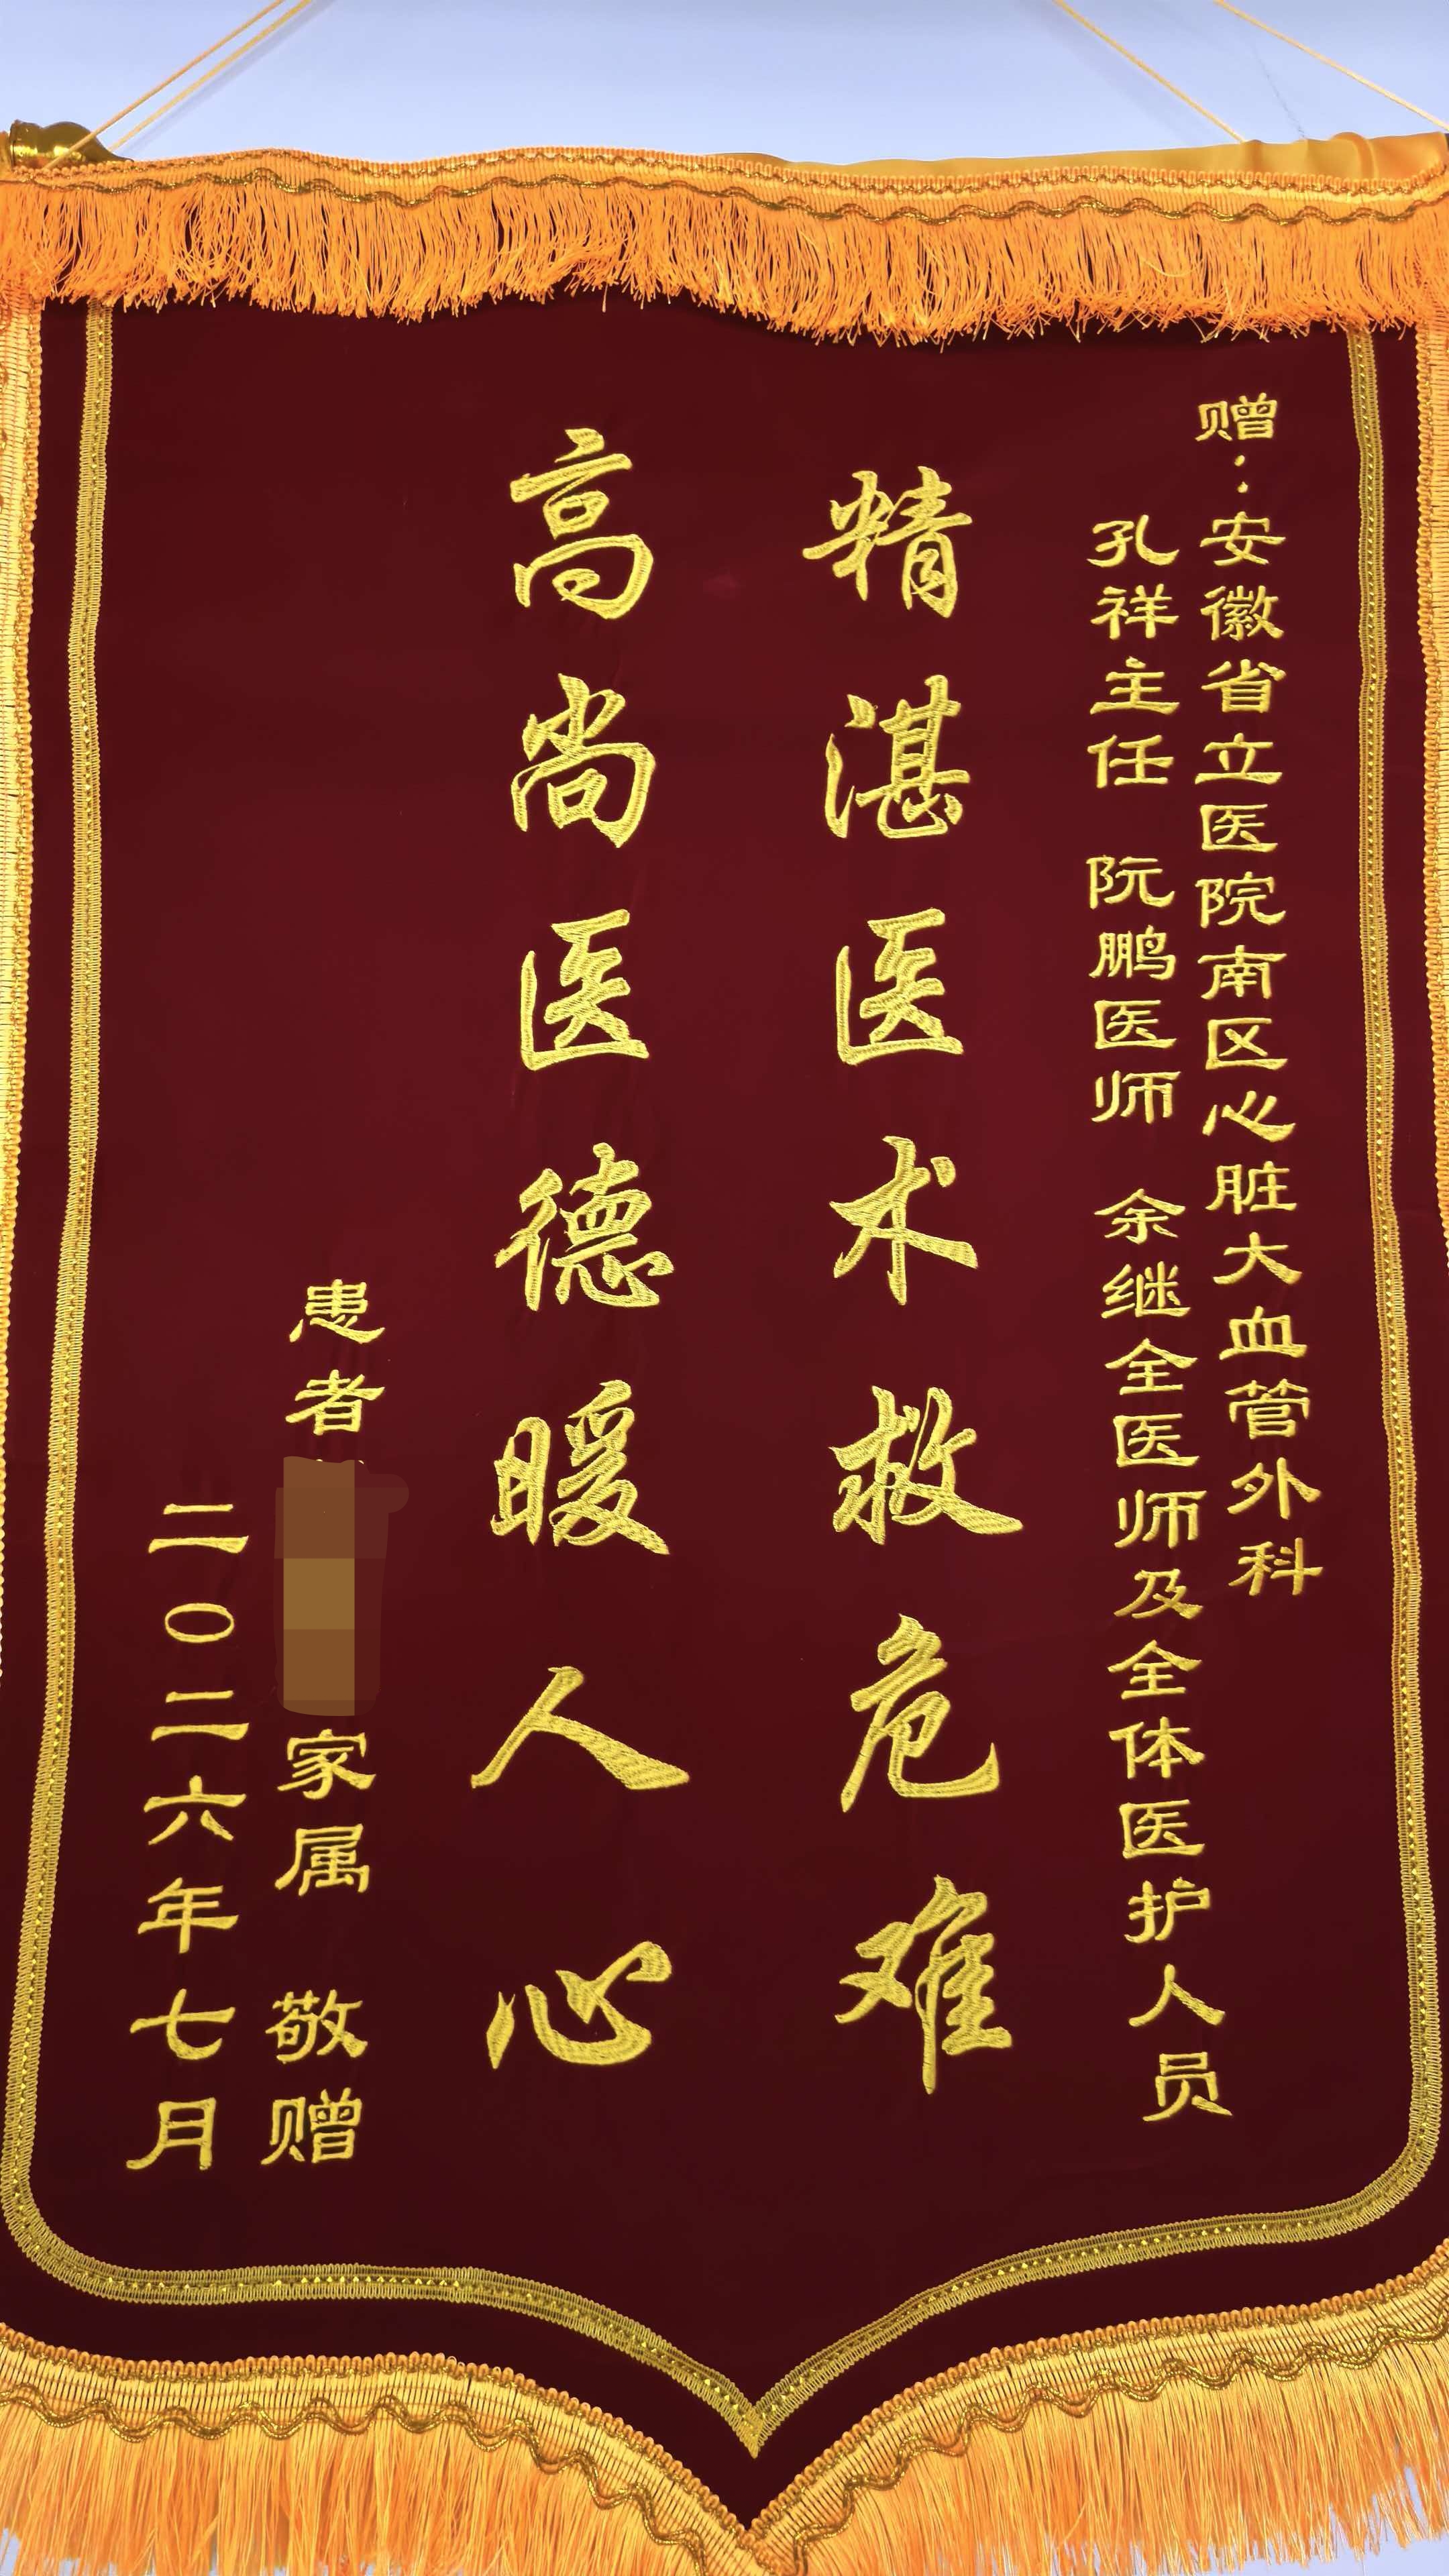 赠：安徽省立医院南区心脏大血管外科
孔祥主任 阮鹏医师 余继全医师及全体医护人员
精湛医术救危难
高尚医德暖人心
患者 家属 敬赠
二〇二六年七月